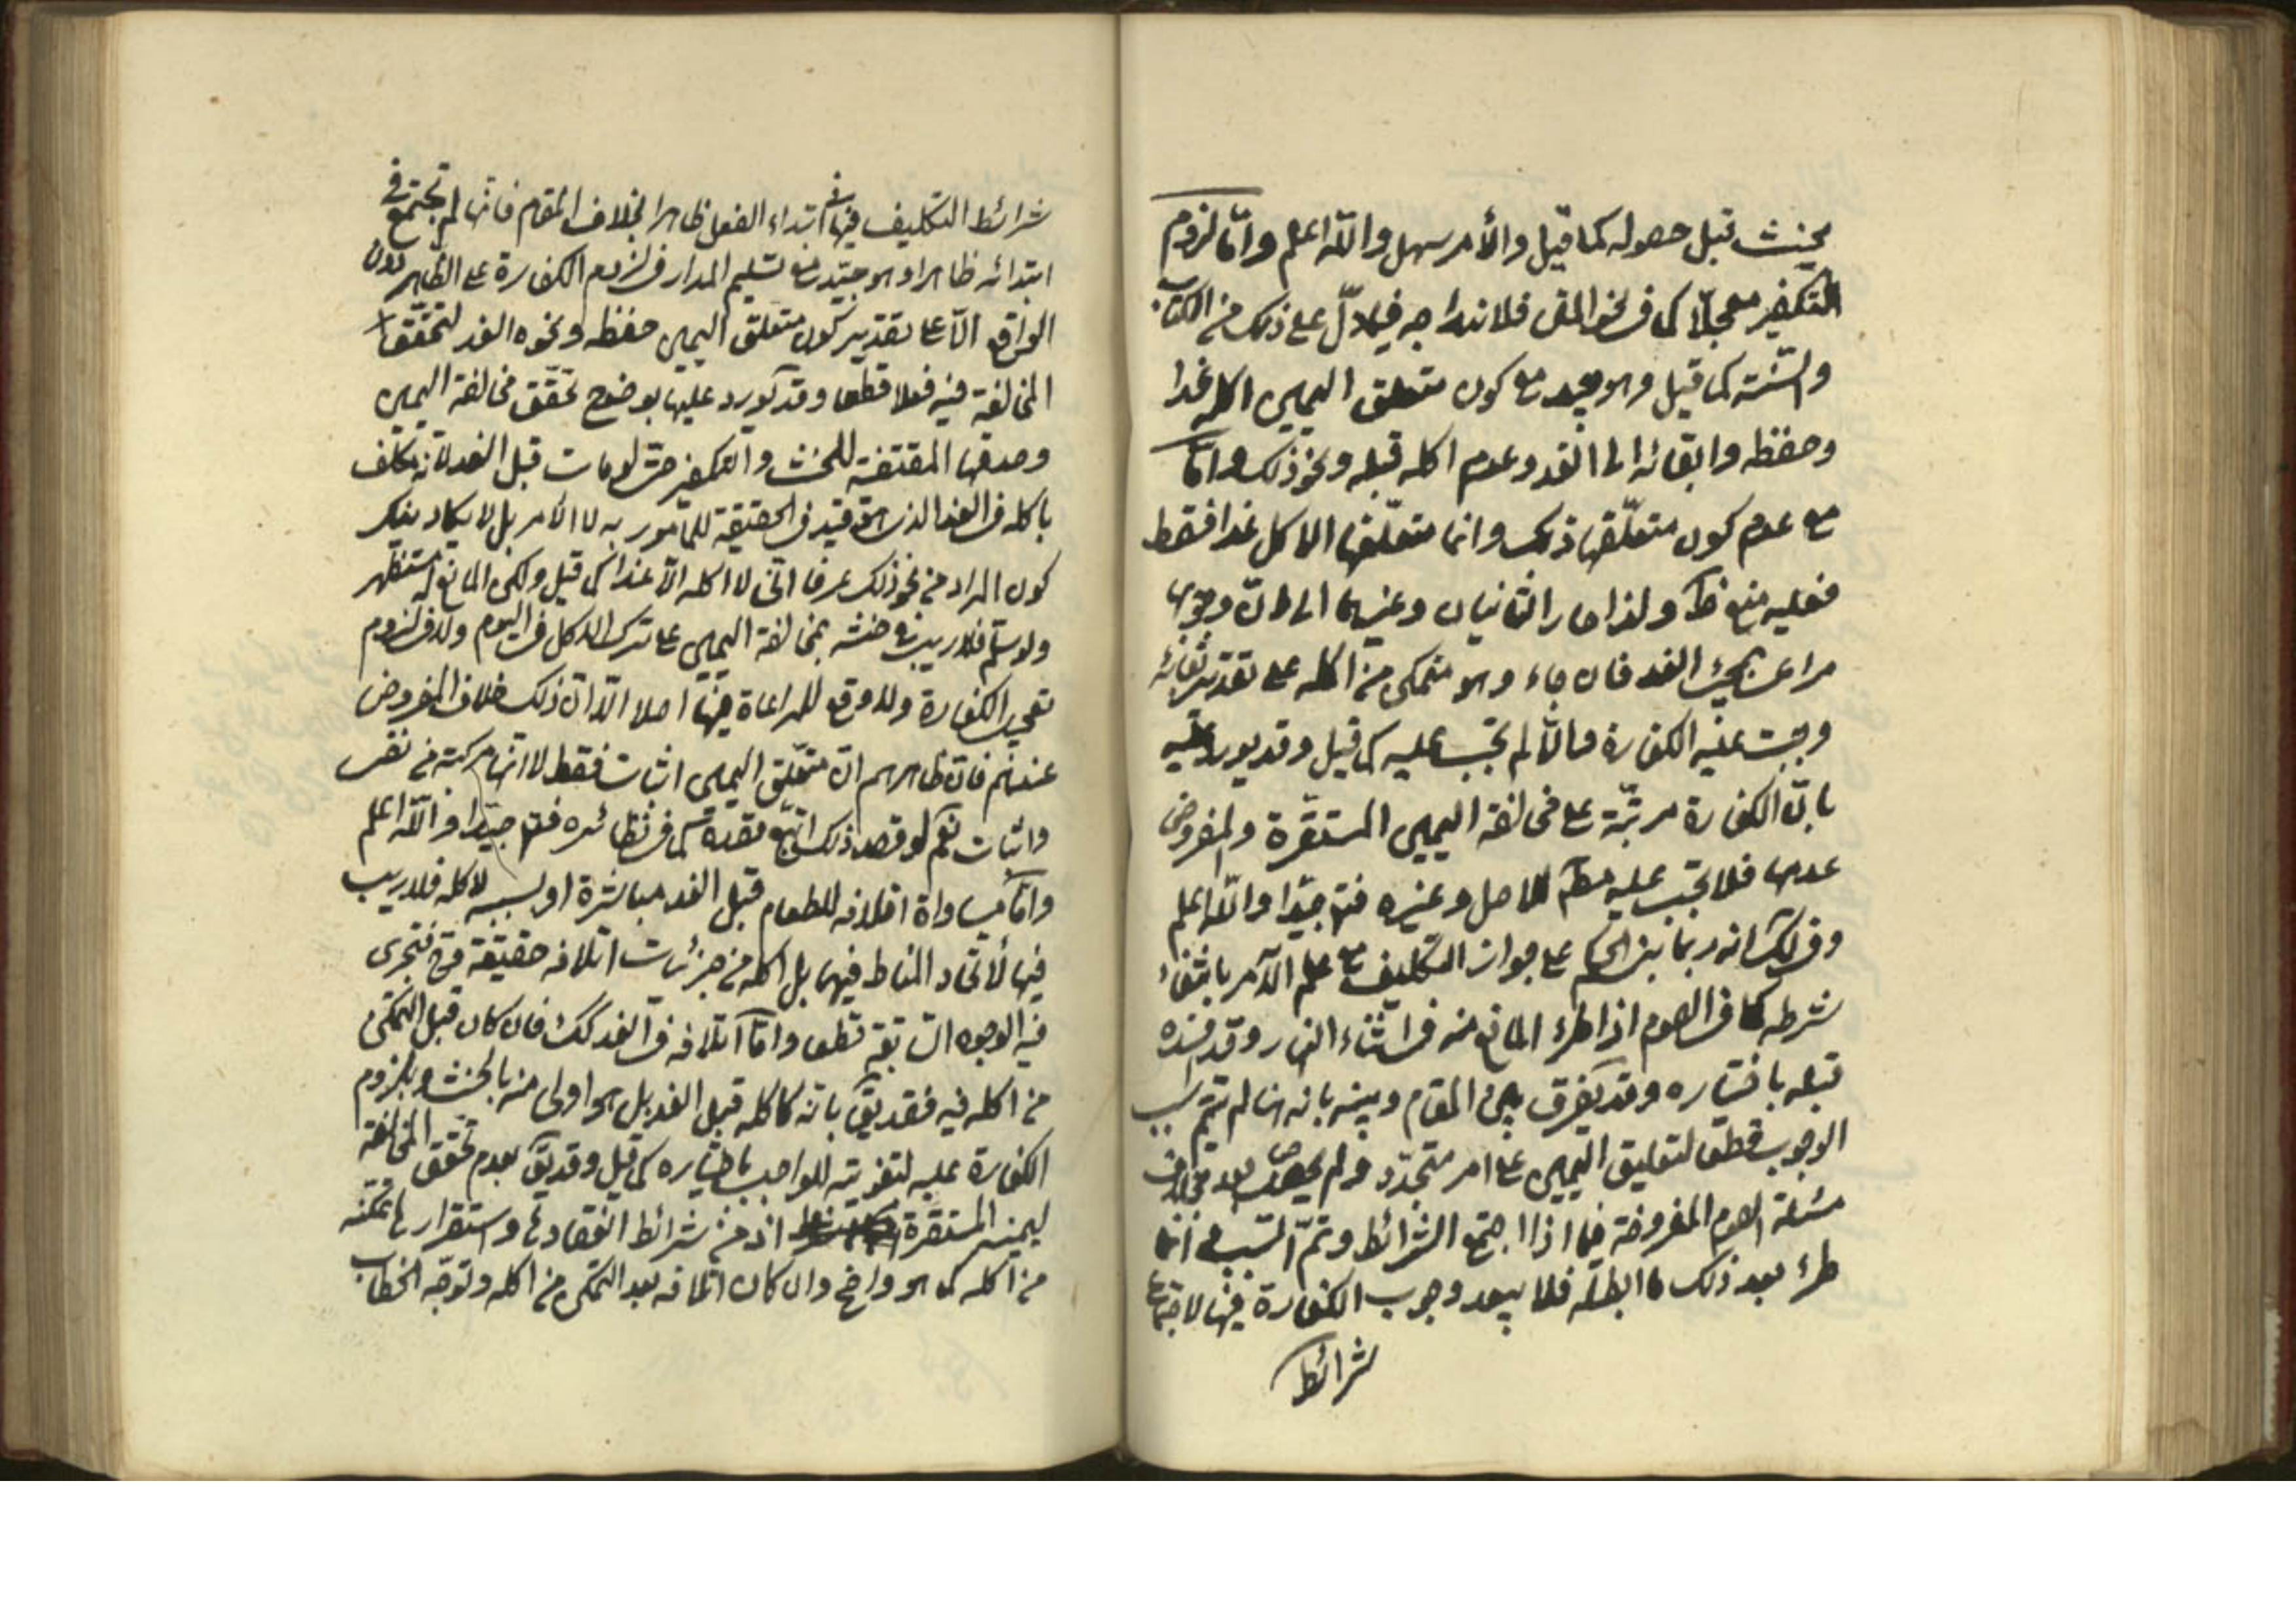 يحنث قبل حصوله كما قيل والأمر سهل والله اعلم وامّا لزوم
التكفير معجلّا كما في المتن فلاندراجه فيما دلّ على ذلك من الكتاب
والسّنة كما قيل وهو جيد مع كون متعلق اليمين اكله غدا
وحفظه وابقائه الى الغد وعدم اكله قبله ونحو ذلك وامّا
مع عدم كون متعلّقها ذلك وانما متعلّقها الاكل غدا فقط
ففيه منع ظ ولذا صار الثانيان وغيرهما الى انّ وجوبها
مراعى بمجيء الغد فان جاء وهو متمكن من اكله على تقدير بقائه
وجبت عليه الكفارة والّا لم تجب عليه كما قيل وقد يورد عليه
بانّ الكفارة مرتّبة على مخالفة اليمين المستقرة والمفروض
عدمها فلا تجب عليه للاصل وغيره فتدبّر جيّدا والله اعلم
وفي لك انه ربما بني الحكم على جواز التكليف مع علم الآمر بانتفاء
شرطه كما في الصوم اذا طرء المانع منه في اثناء النهار وقد افسده
قبله باختياره وقد يفرق بين المقام وبينه بانه هنا لم يتم سبب
الوجوب قطعا لتعليق اليمين على امر متجدّد ولم يحصل بعد بخلاف
مسئلة الصوم المفروضة فيما اذا اجتمع الشرائط وتمّ السّبب انما
طرء بعد ذلك ما ابطله فلا يبعد وجوب الكفارة فيها لاجتماع
شرائط
شرائط التكليف فيها في ابتداء الفعل ظاهرا بخلاف المقام فانّها لم تجتمع في
ابتدائه ظاهرا وهو جيّد مع تسليم المدار في لزوم الكفارة على الظاهر دون
الواقع الّا على تقدير كون متعلق اليمين حفظه ونحوه الغد لتحقّق
المخالفة فيه فعلا قطعا وقد يورد عليها بوضوح تحقّق مخالفة اليمين
وصدقها المقتضية للحنث والتكفير حتى لو مات قبل الغد لانه مكلف
باكله في الغد الذي هو قيد في الحقيقة للمأمور به لا الأمر بل لا يكاد ينكر
كون المراد من نحو ذلك عرفا انّي لا اكله الّا غدا كما قيل ولكن المانع مستظهر
ولو سلّم فلا ريب في حنثه بمخالفة اليمين على ترك الاكل في اليوم ولا في لزوم
تعجيل الكفارة ولا وقع للمراعاة فيها اصلا الّا انّ ذلك خلاف المفروض
عندهم فان ظاهرهم انّ متعلّق اليمين اثبات فقط لا انّها مركبة من نفى
واثبات نعم لو قصد ذلك اتّبع قصده كما في نظائره فتدبر جيّدا والله اعلم
وامّا مساواة اتلافه للطعام قبل الغد مباشرة او بسببه لاكله فلا ريب
فيها لاتّحاد المناط فيهما بل اكله من جزئيات اتلافه حقيقة فتجرى
فيه الوجوه السّابقة قطعا وامّا اتلافه في الغد كك فان كان قبل التمكن
من اكله فيه فقد يق بانّه كاكله قبل الغد بل هو اولى منه بالحنث وبلزوم
الكفارة عليه لتفويته للواجب باختياره كما قيل وقد يق بعدم تحقق المخالفة
ليمينه المستقرة اذ من شرائط انعقادها واستقرارها تمكّنه
من اكله كما هو واضح وان كان اتلافه بعد التمكن من اكله وتوجّه الخطاب